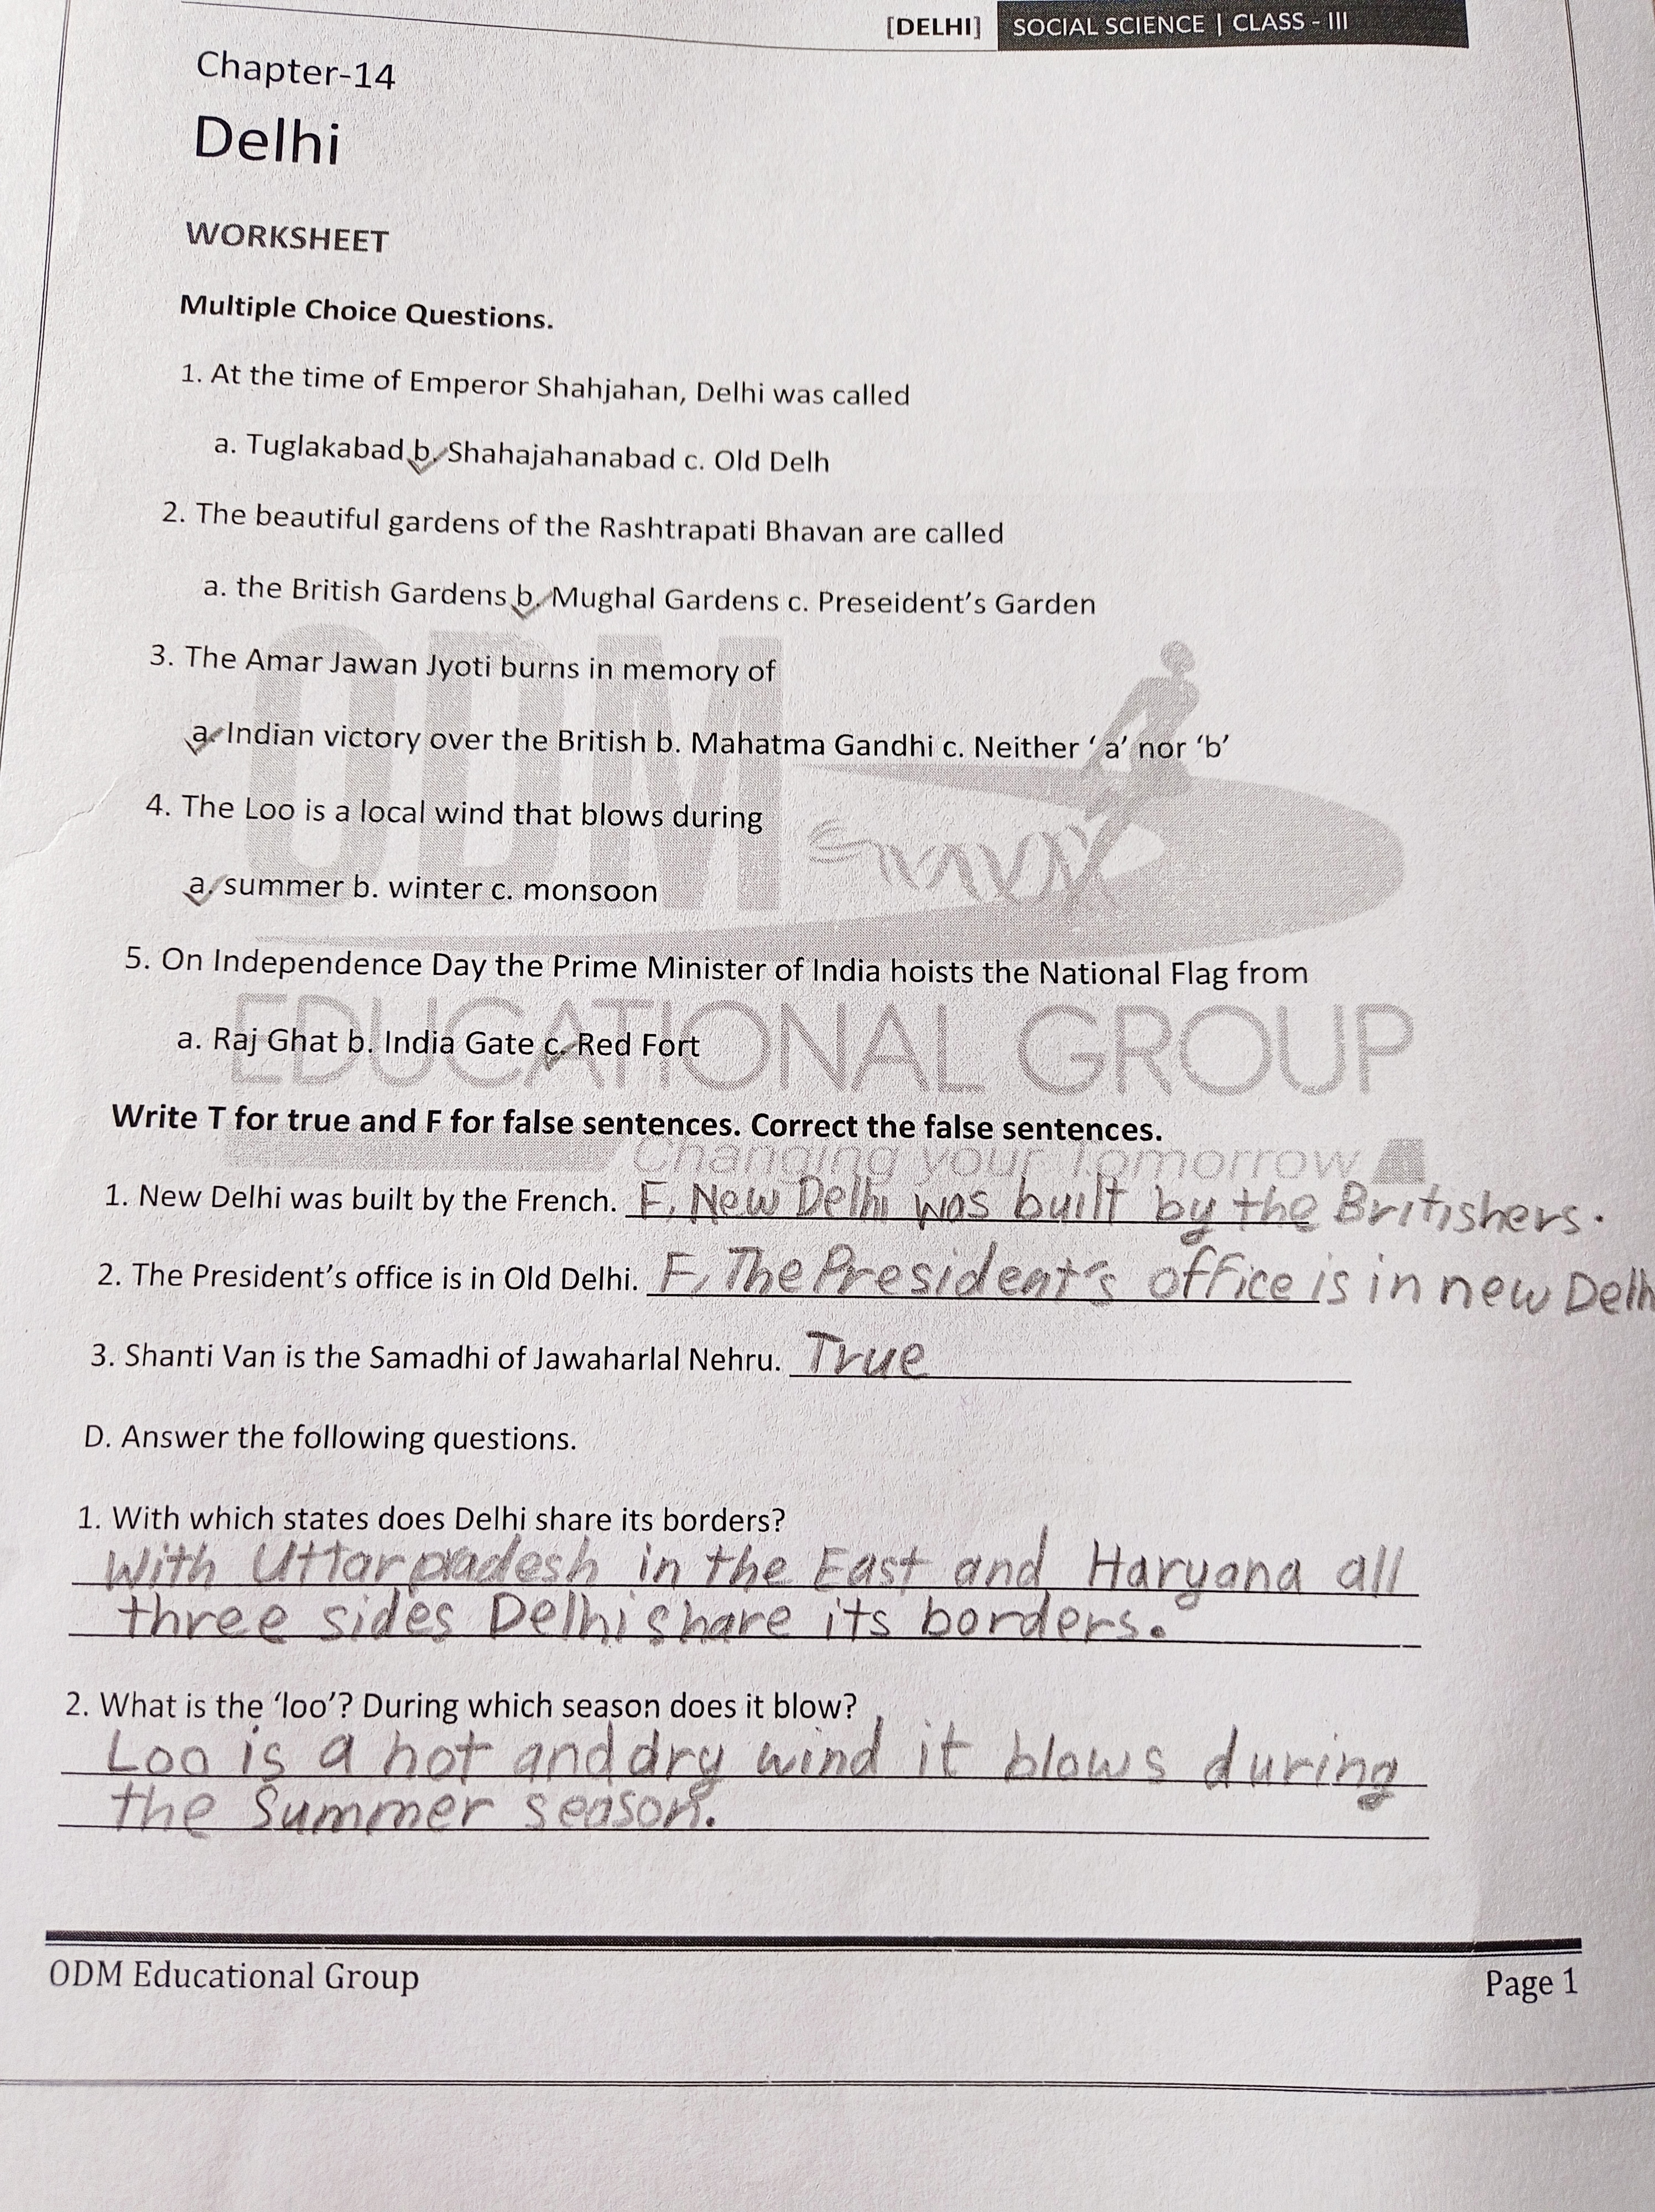 [DELHI] SOCIAL SCIENCE | CLASS - III
Chapter-14
Delhi
WORKSHEET
Multiple Choice Questions.
1. At the time of Emperor Shahjahan, Delhi was called
a. Tuglakabad b. Shahajahanabad c. Old Delh
2. The beautiful gardens of the Rashtrapati Bhavan are called
a. the British Gardens b. Mughal Gardens c. Preseident's Garden
ODM
3. The Amar Jawan Jyoti burns in memory of
a. Indian victory over the British b. Mahatma Gandhi c. Neither ‘ a’ nor ‘b’
4. The Loo is a local wind that blows during
a. summer b. winter c. monsoon
5. On Independence Day the Prime Minister of India hoists the National Flag from
EDUCATIONAL GROUP
a. Raj Ghat b. India Gate c. Red Fort
Write T for true and F for false sentences. Correct the false sentences.
Changing your Tomorrow
1. New Delhi was built by the French. F, New Delhi was built by the Britishers.
2. The President’s office is in Old Delhi. F, The President's office is in new Delh
3. Shanti Van is the Samadhi of Jawaharlal Nehru. True
D. Answer the following questions.
1. With which states does Delhi share its borders?
With Uttarpradesh in the East and Haryana all
three sides Delhi share its borders.
2. What is the ‘loo’? During which season does it blow?
Loo is a hot and dry wind it blows during
the Summer season.
ODM Educational Group Page 1